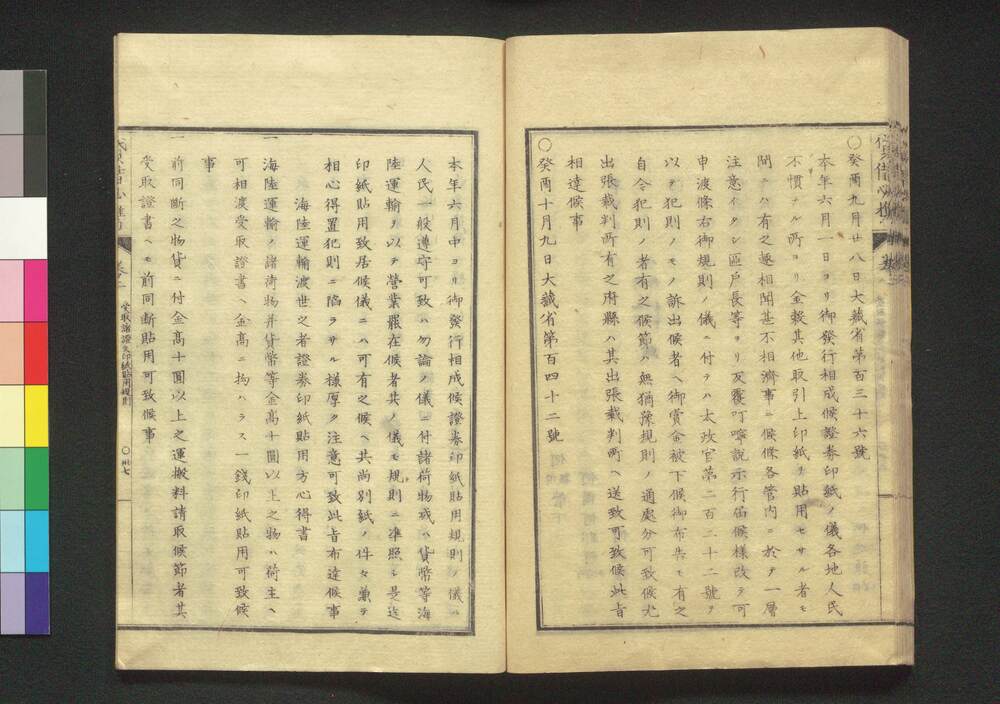 〇癸酉九月廿八日大藏省第百三十六號
本年六月一日ヨリ御發行相成候證券印紙ノ儀各地人民
不慣ナル所ヨリ金穀其他取引上印紙ヲ貼用セサル者モ
間ニハ有之趣相聞甚不相濟事ニ候條各管內ニ於テ一層
注意イタシ區戶長等ヨリ反覆叮嚀說示行屆候樣改テ可
申渡條右御規則ノ儀ニ付テハ太政官第二百二十二號ヲ
以テ犯則ノモノ訴出候者ヘ御賞金被下候御布告モ有之
自今犯則ノ者有之候節ハ無猶豫規則ノ通處分可致候尤
出張裁判所有之府縣ハ其出張裁判所ヘ送致可致候此旨
相達候事
〇癸酉十月九日大藏省第百四十二號
本年六月中ヨリ御發行相成候證券印紙貼用規則ノ儀ハ
人民一般遵守可致ハ勿論ノ儀ニ付諸荷物或ハ貨幣等海
陸運輸ヲ以テ營業罷在候者共ノ儀モ規則ニ準照シ是迄
印紙貼用致居候儀ニハ可有之候ヘ共尚別紙ノ件々兼テ
相心得置犯則ニ陷ラサル樣厚ク注意可致此旨布達候事
海陸運輸渡世之者證券印紙貼用方心得書
一海陸運輸ノ諸荷物并貨幣等金高十圓以上之物ハ荷主ヘ
可相渡受取證書ヘ金高ニ拘ハラス一錢印紙貼用可致候
事
一前同斷之物貨ニ付金高十圓以上之運搬料請取候節者其
受取證書ヘモ前同斷貼用可致候事
受取諸證文印紙貼用規則
〇卅七